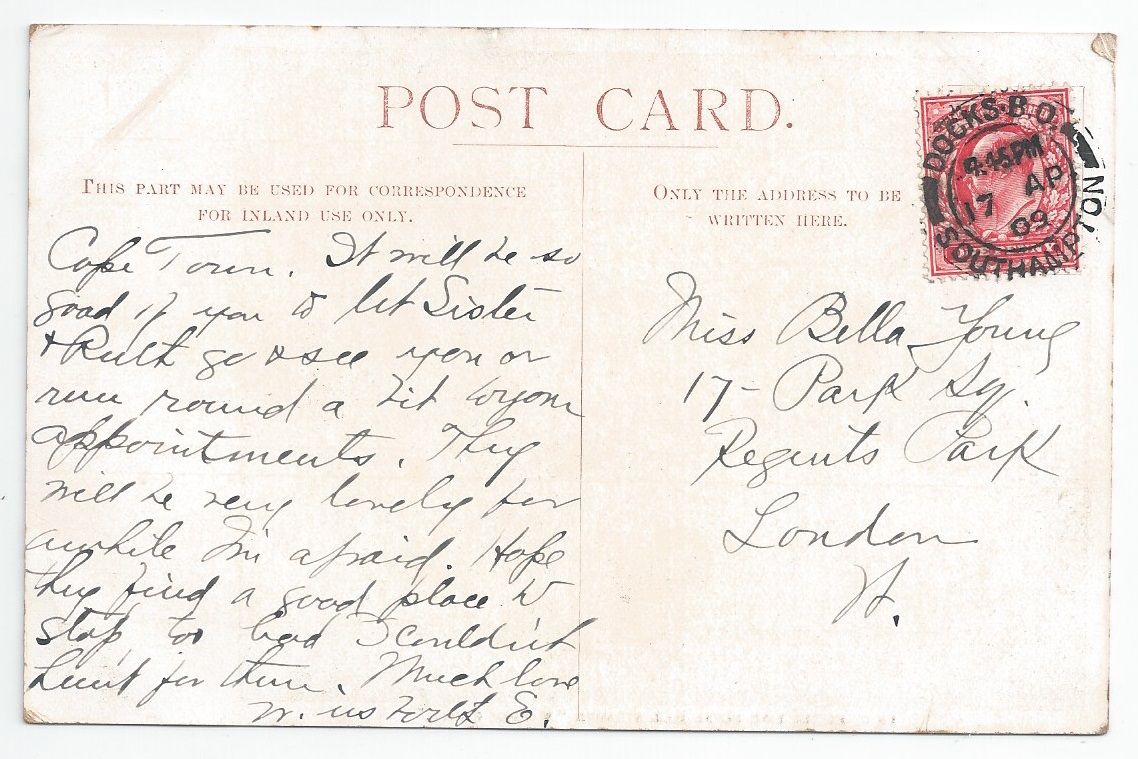 POST CARD.
THIS PART MAY BE USED FOR CORRESPONDENCE
FOR INLAND USE ONLY.
ONLY THE ADDRESS TO BE
WRITTEN HERE.
DOCKS.B.O.
SOUTHAMPTON
4.45PM
17 AP
09
Cape Town. It will be so
good if you to let Sister
+ Ruth go & see you or
run round a bit
appointments. They
will be very lonely for
awhile I'm afraid. Hope
they find a good place to
stop, too bad I couldn't
hunt for them. Much love
E.
Miss Bella Young
17- Park Sq.
Regents Park
London